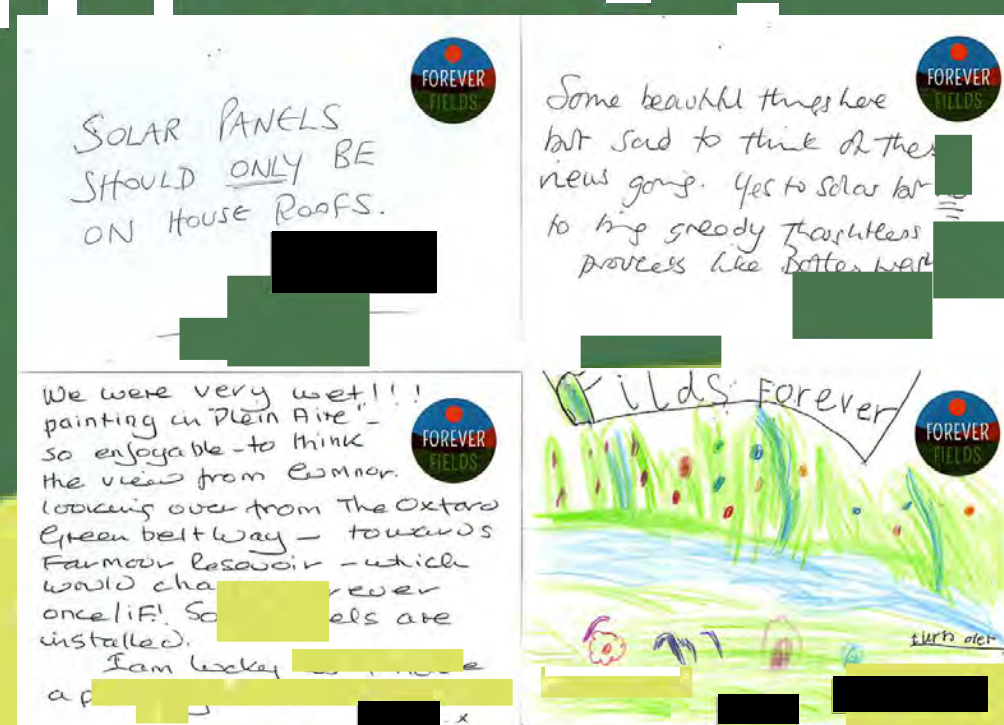 FOREVER
FIELDS
SOLAR PANELS
SHOULD ONLY BE
ON HOUSE ROOFS.
FOREVER
FIELDS
Some beautiful things here
but sad to think of
views going. Yes to solar but
to big greedy thoughtless
process like Botley West
FOREVER
FIELDS
We were very wet!!!
painting in "Plein Aire" -
so enjoyable - to think
the view from Cumnor.
Looking over from The Oxford
Green belt Way - towards
Farmour Resovoir - which
would
once/iF! are
installed.
I am lucky
a
x
FOREVER
FIELDS
Filds Forever
turn over